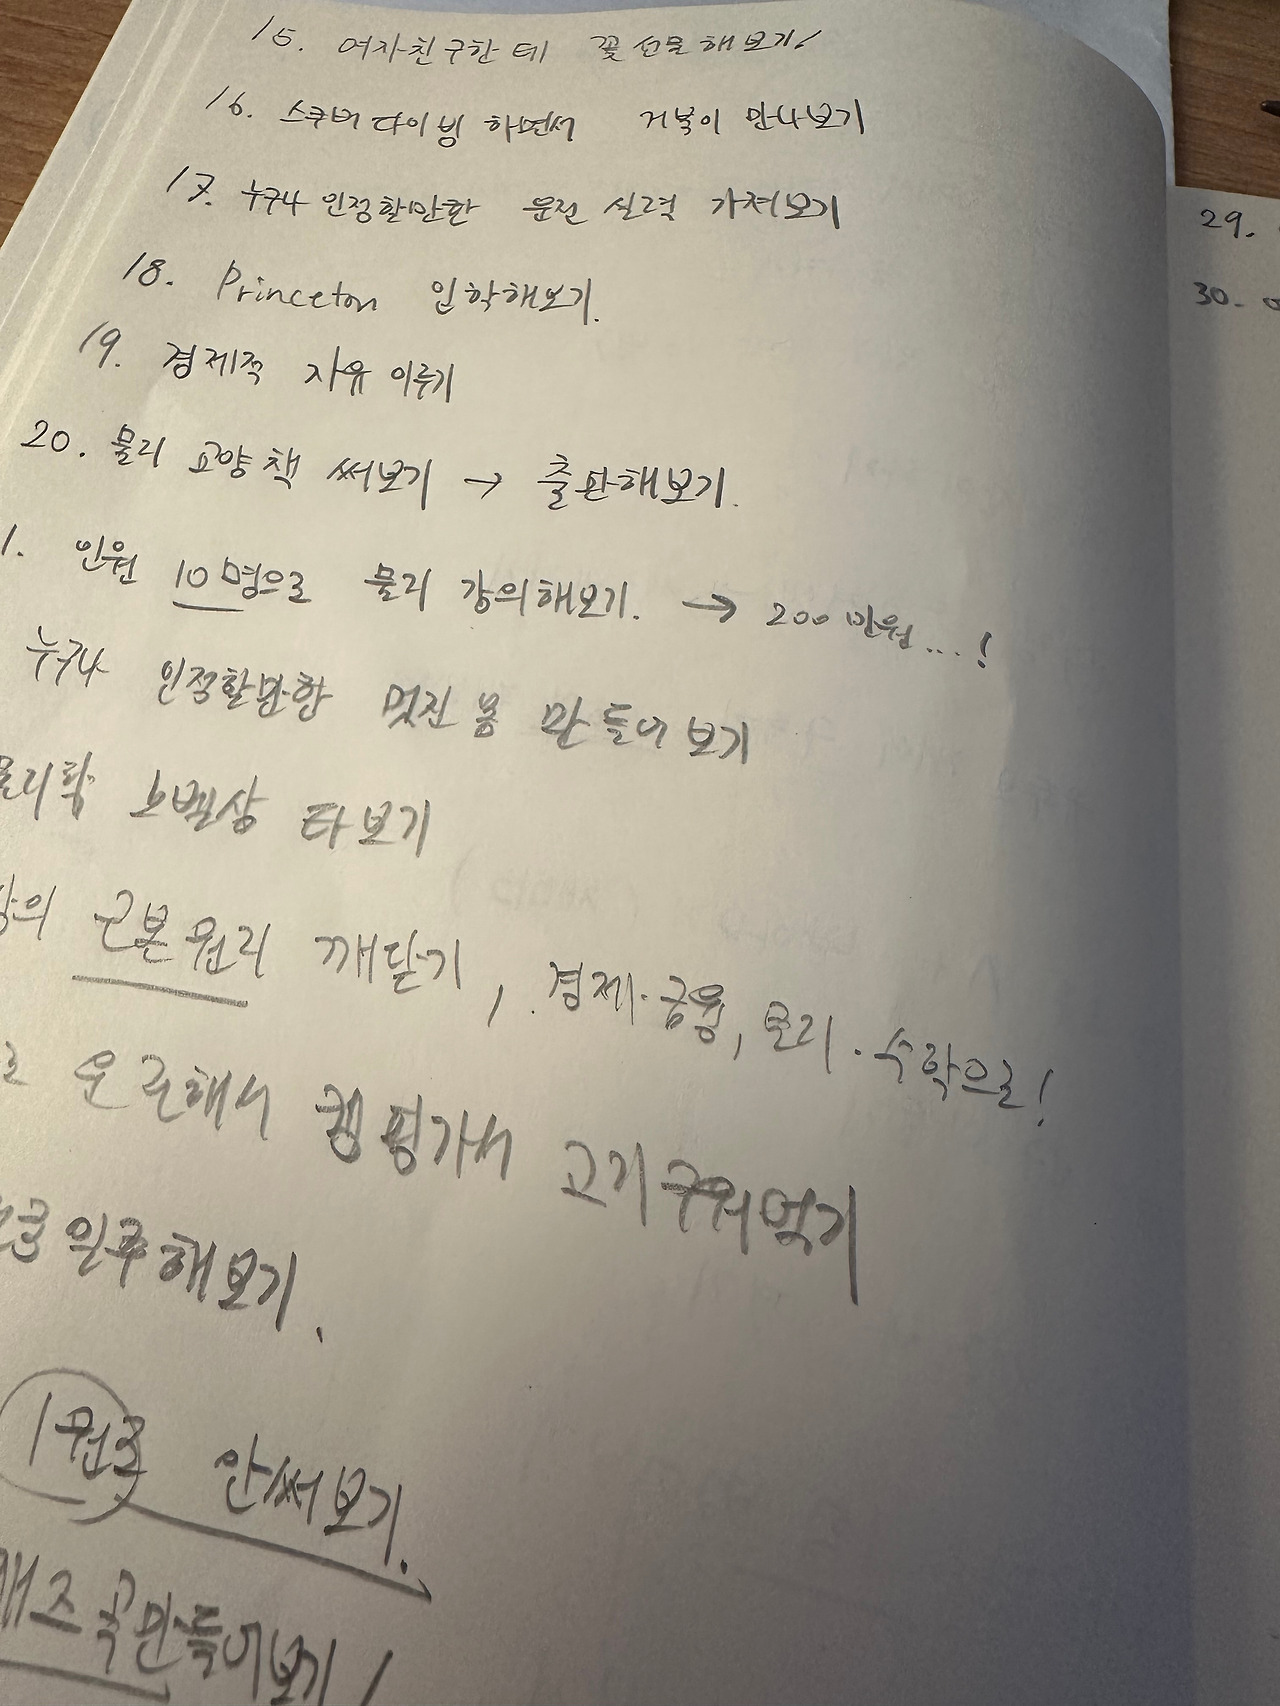 15. 여자친구한테 꽃 선물해보기!
16. 스쿠버다이빙 하면서 거북이 만나보기
17. 누구나 인정할만한 운전 실력 가져보기
18. Princeton 입학해보기.
19. 경제적 자유 이루기
20. 물리 교양책 써보기 → 출판해보기.
1. 인원 10명으로 물리 강의해보기. → 200만원...!
누구나 인정할만한 멋진 몸 만들어보기
물리학 노벨상 타보기
근본 원리 깨닫기, 경제·금융, 물리·수학으로!
로 운전해서 캠핑가서 고기 구워먹기
일주해보기.
1원도 안써보기.
재즈곡 만들어보기!
29.
30.